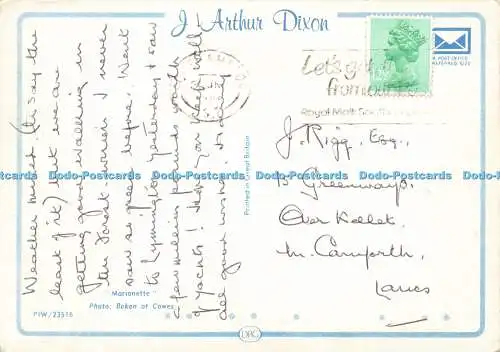 J Arthur Dixon
A POST OFFICE
Let's
from
Royal Mail
Weather mixed (to say the
least of it) but we are
getting good walking in
the Forest - which I never
saw so green before. Went
to Lymington yesterday & saw
a few million pounds worth
of yachts! Hope you keep well
all good wishes
J. Rigg, Esq.,
13 Greenways,
Over Kellet,
Nr. Carnforth,
Lancs
Printed in Great Britain
Marionette
Photo: Beken of Cowes
PIW/23516
DRG
Postcards Postcards Postcards Postcards Postcards Postcards